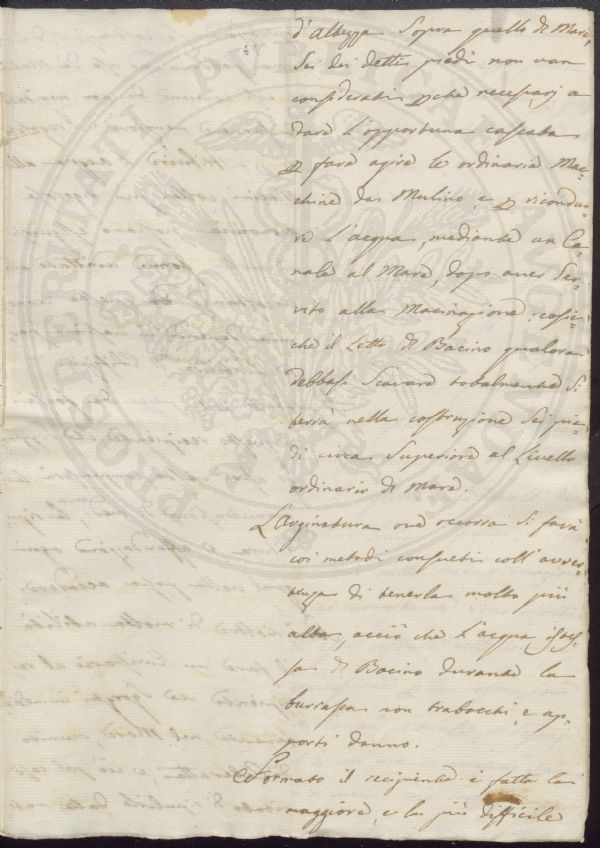 d'altezza sopra quello di Mare,
Sei dei detti piedi non van
considerati pche necessarj a
dare l'opportuna cascata
p fare agire le ordinarie Mac-
chine da Mulino, e p ricondur-
re l'acqua, mediante un Ca-
nale al Mare, dopo aver Ser-
vito alla Macinazione: cosic-
che il Letto di Bacino qualora
debbasi Scavare totalmente Si
terrà nella costruzione Sei pie-
di circa Superiore al Livello
ordinario di Mare.
L'arginatura ove occorra Si farà
coi metodi consueti coll'avver-
tenza di tenerla molto più
alta, acciò che l'acqua istes-
sa di Bacino durante la
burrasca non trabocchi, e ap-
porti danno.
Formato il recipiente è fatta la
maggiore, e la più difficile
PROSPERITATI PUBLICAE